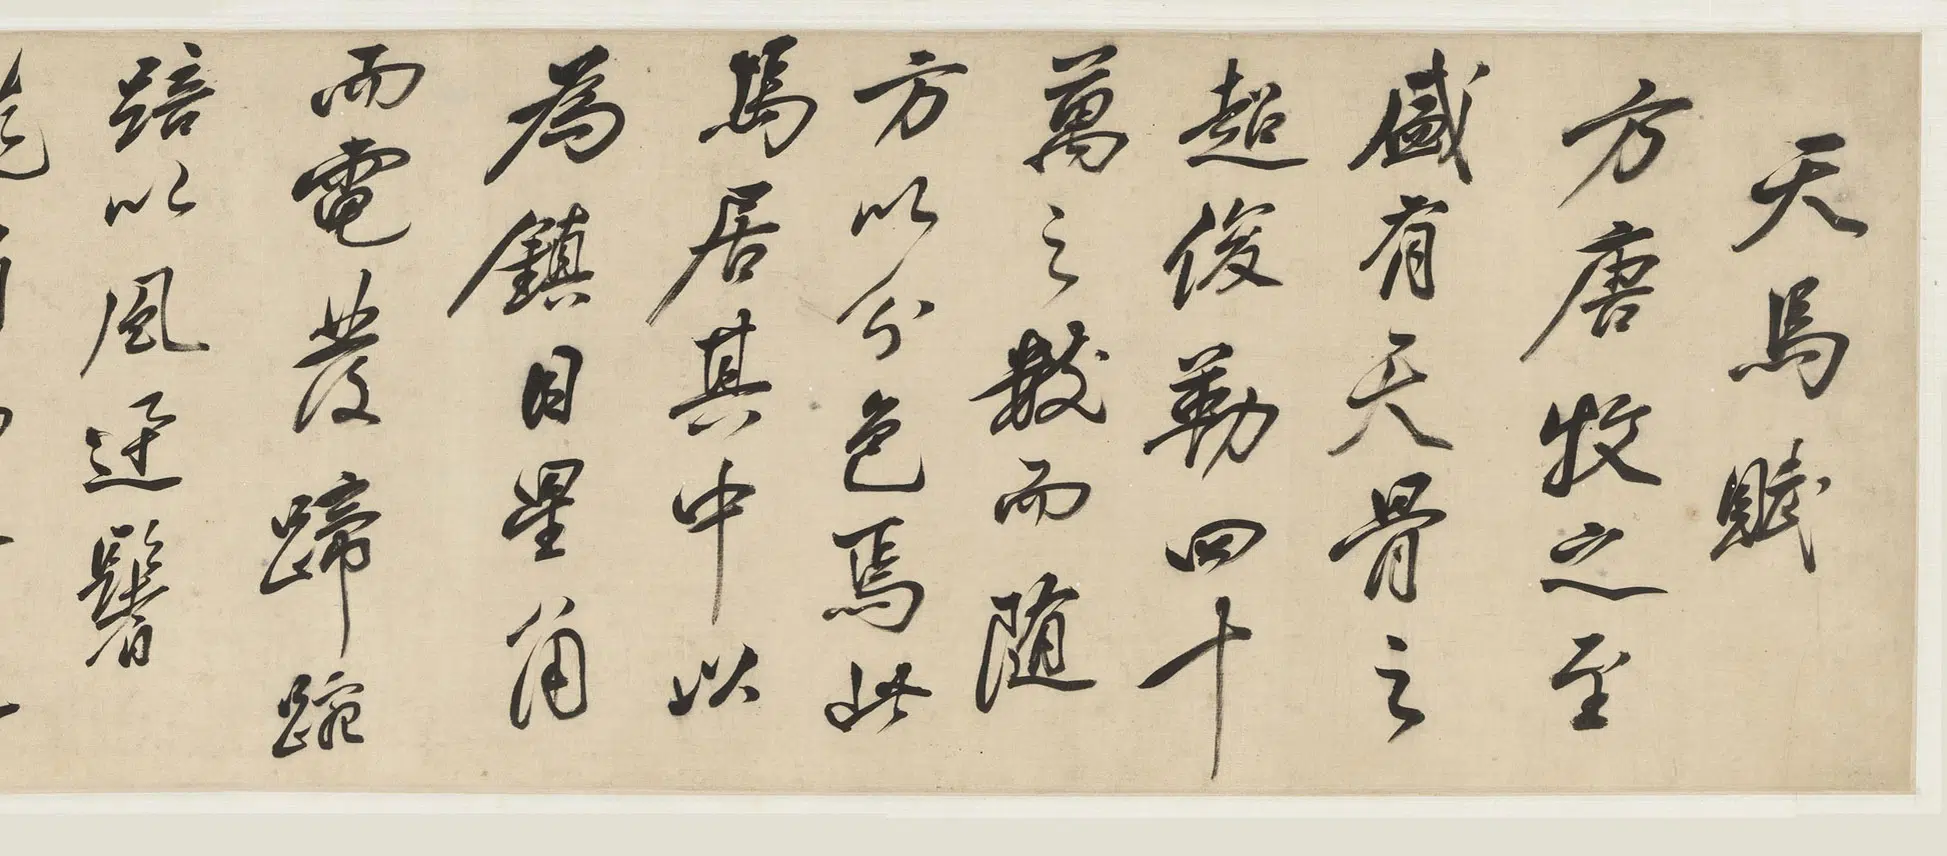 天馬賦
方唐牧之至
盛有天骨之
超俊勒四十
萬之數而隨
方以分色焉此
馬居其中以
為鎮目星角
而電發蹄踠
踣以風迅鬐